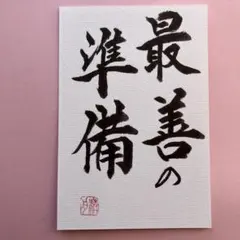 最善の
準備